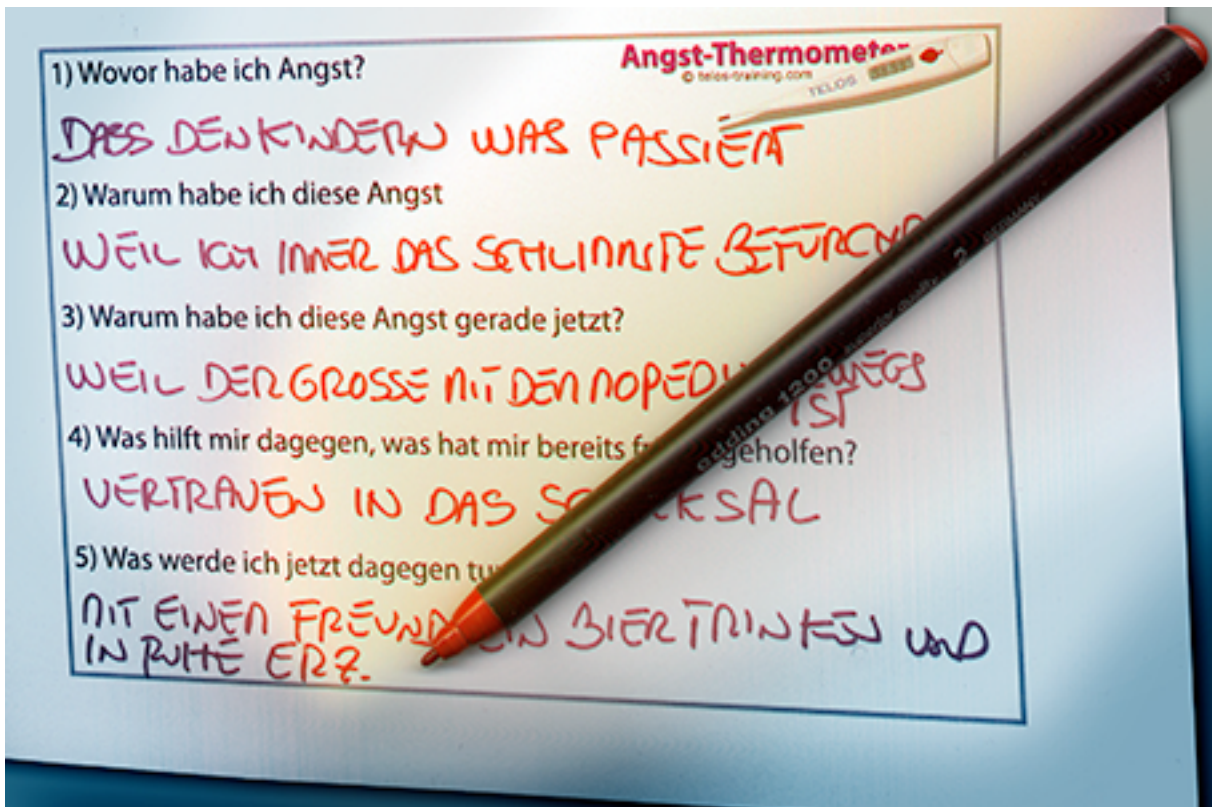 Angst-Thermometer
© telos-training.com
TELOS
1) Wovor habe ich Angst?
DASS DEN KINDERN WAS PASSIERT
2) Warum habe ich diese Angst
WEIL ICH IMMER DAS SCHLIMMSTE
3) Warum habe ich diese Angst gerade jetzt?
WEIL DER GROSSE MIT DEM MOPED
IST
4) Was hilft mir dagegen, was hat mir bereits geholfen?
VERTRAUEN IN DAS
5) Was werde ich jetzt dagegen
MIT EINEM FREUND BIER TRINKEN UND
IN RUHE ERZ.
edding 1200
GERMANY